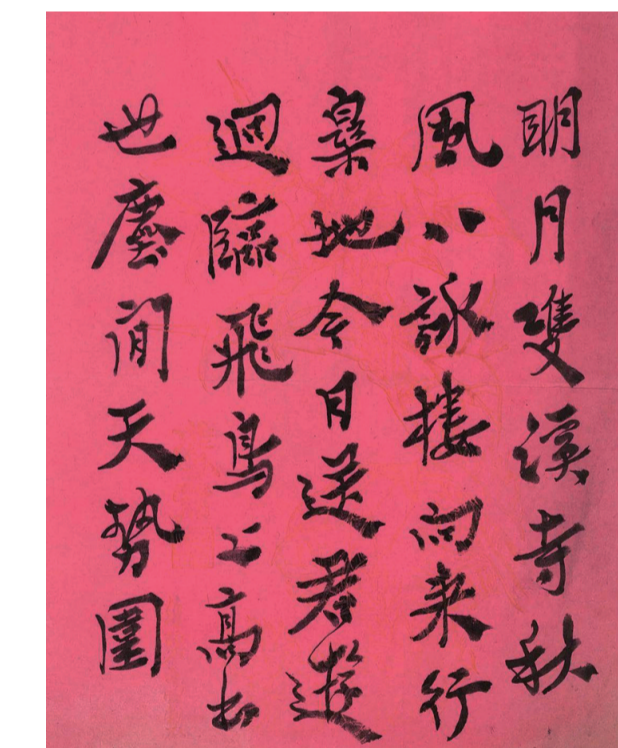 明月雙溪寺秋
風八詠樓向来行
楽地今日送君遊
迥臨飛鳥上高出
世塵間天勢圍